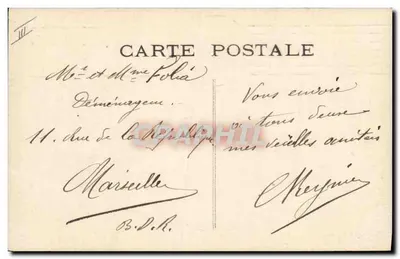 III
CARTE POSTALE
Mr et Mme Folia
Déménageur
11 Rue de la République
Marseille
B. D. R.
Vous envoie
à tous deux
mes amitiés
Meynier